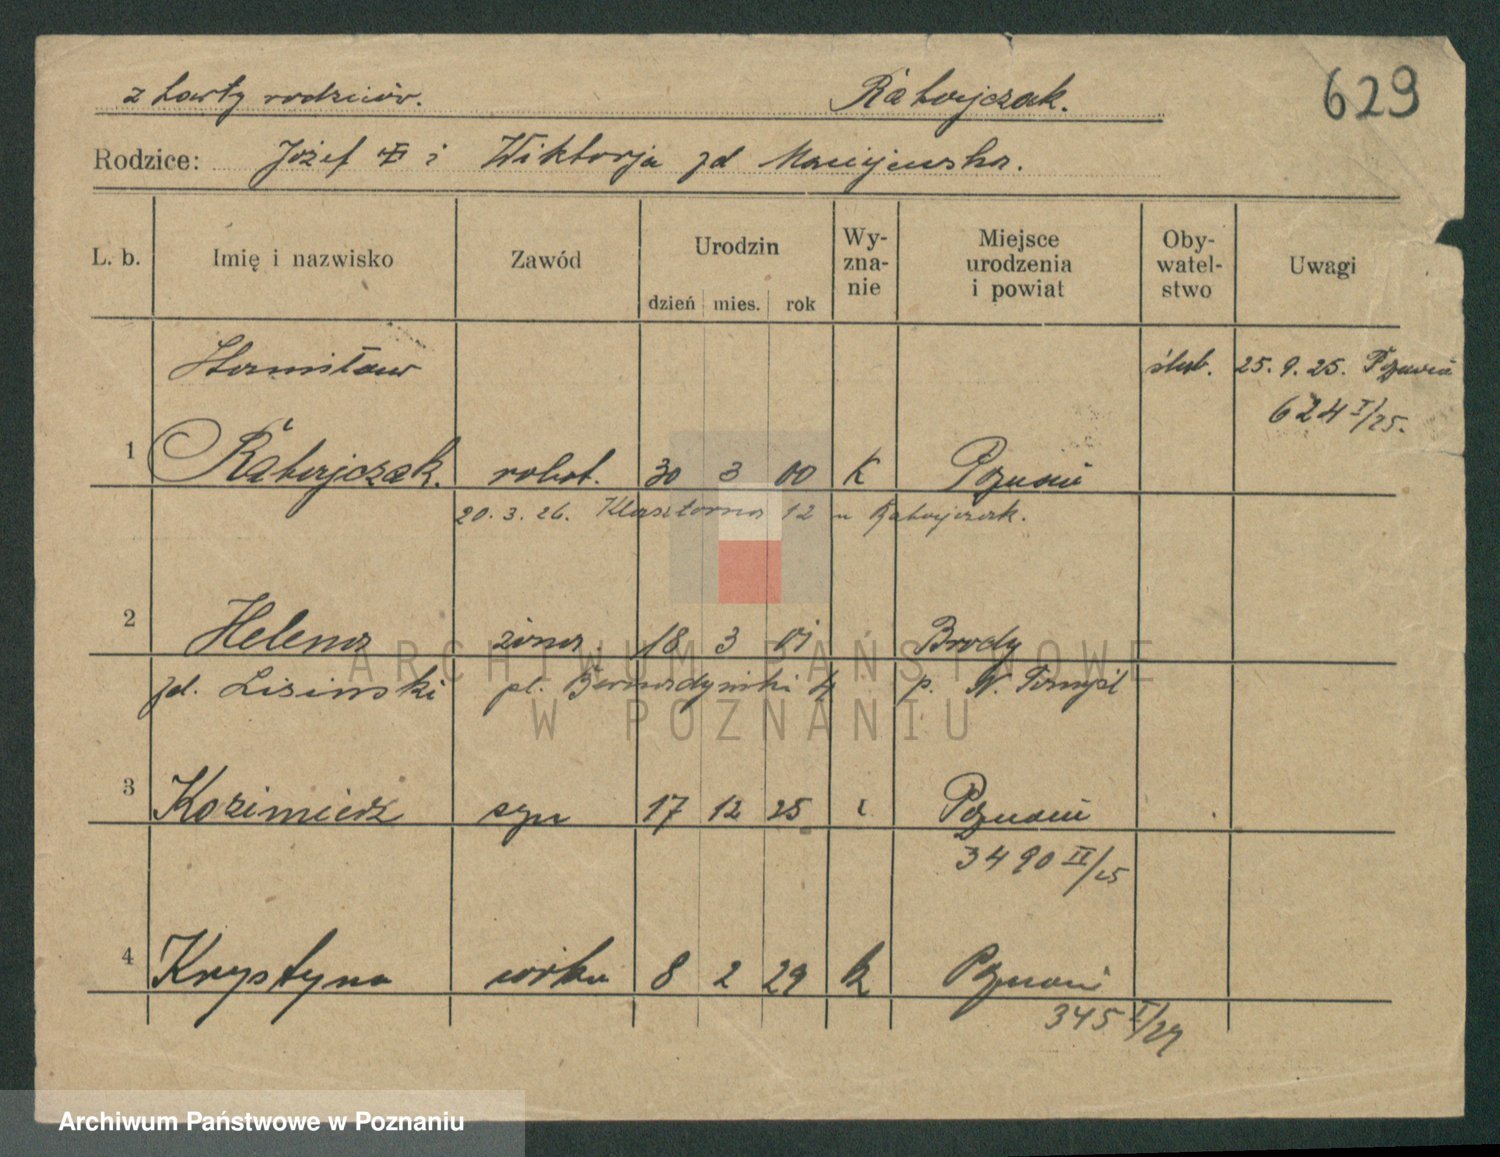 z karty rodziców. Ratajczak. 629
Rodzice: Józef i Wiktorja zd Maciejewska.
L. b. Imię i nazwisko Zawód Urodzin Wy-zna-nie Miejsce urodzenia i powiat Oby-watel-stwo Uwagi
dzień mies. rok
Stanisław ślub. 25. 9. 25. Poznań
624 I/25.
1 Ratajczak. robot. 30 3 00 K Poznań
20. 3. 26. Klasztorna 12 u Ratajczak.
2 Helena żona 18 3 01 Brody
zd. Lisinski pl. Bernardyński 4 p. N. Tomyśl
3 Kazimierz syn 17 12 25 Poznań
3490 II/25
4 Krystyna córka 8 2 29 k Poznań
345 I/29
ARCHIWUM PAŃSTWOWE
W POZNANIU
Archiwum Państwowe w Poznaniu